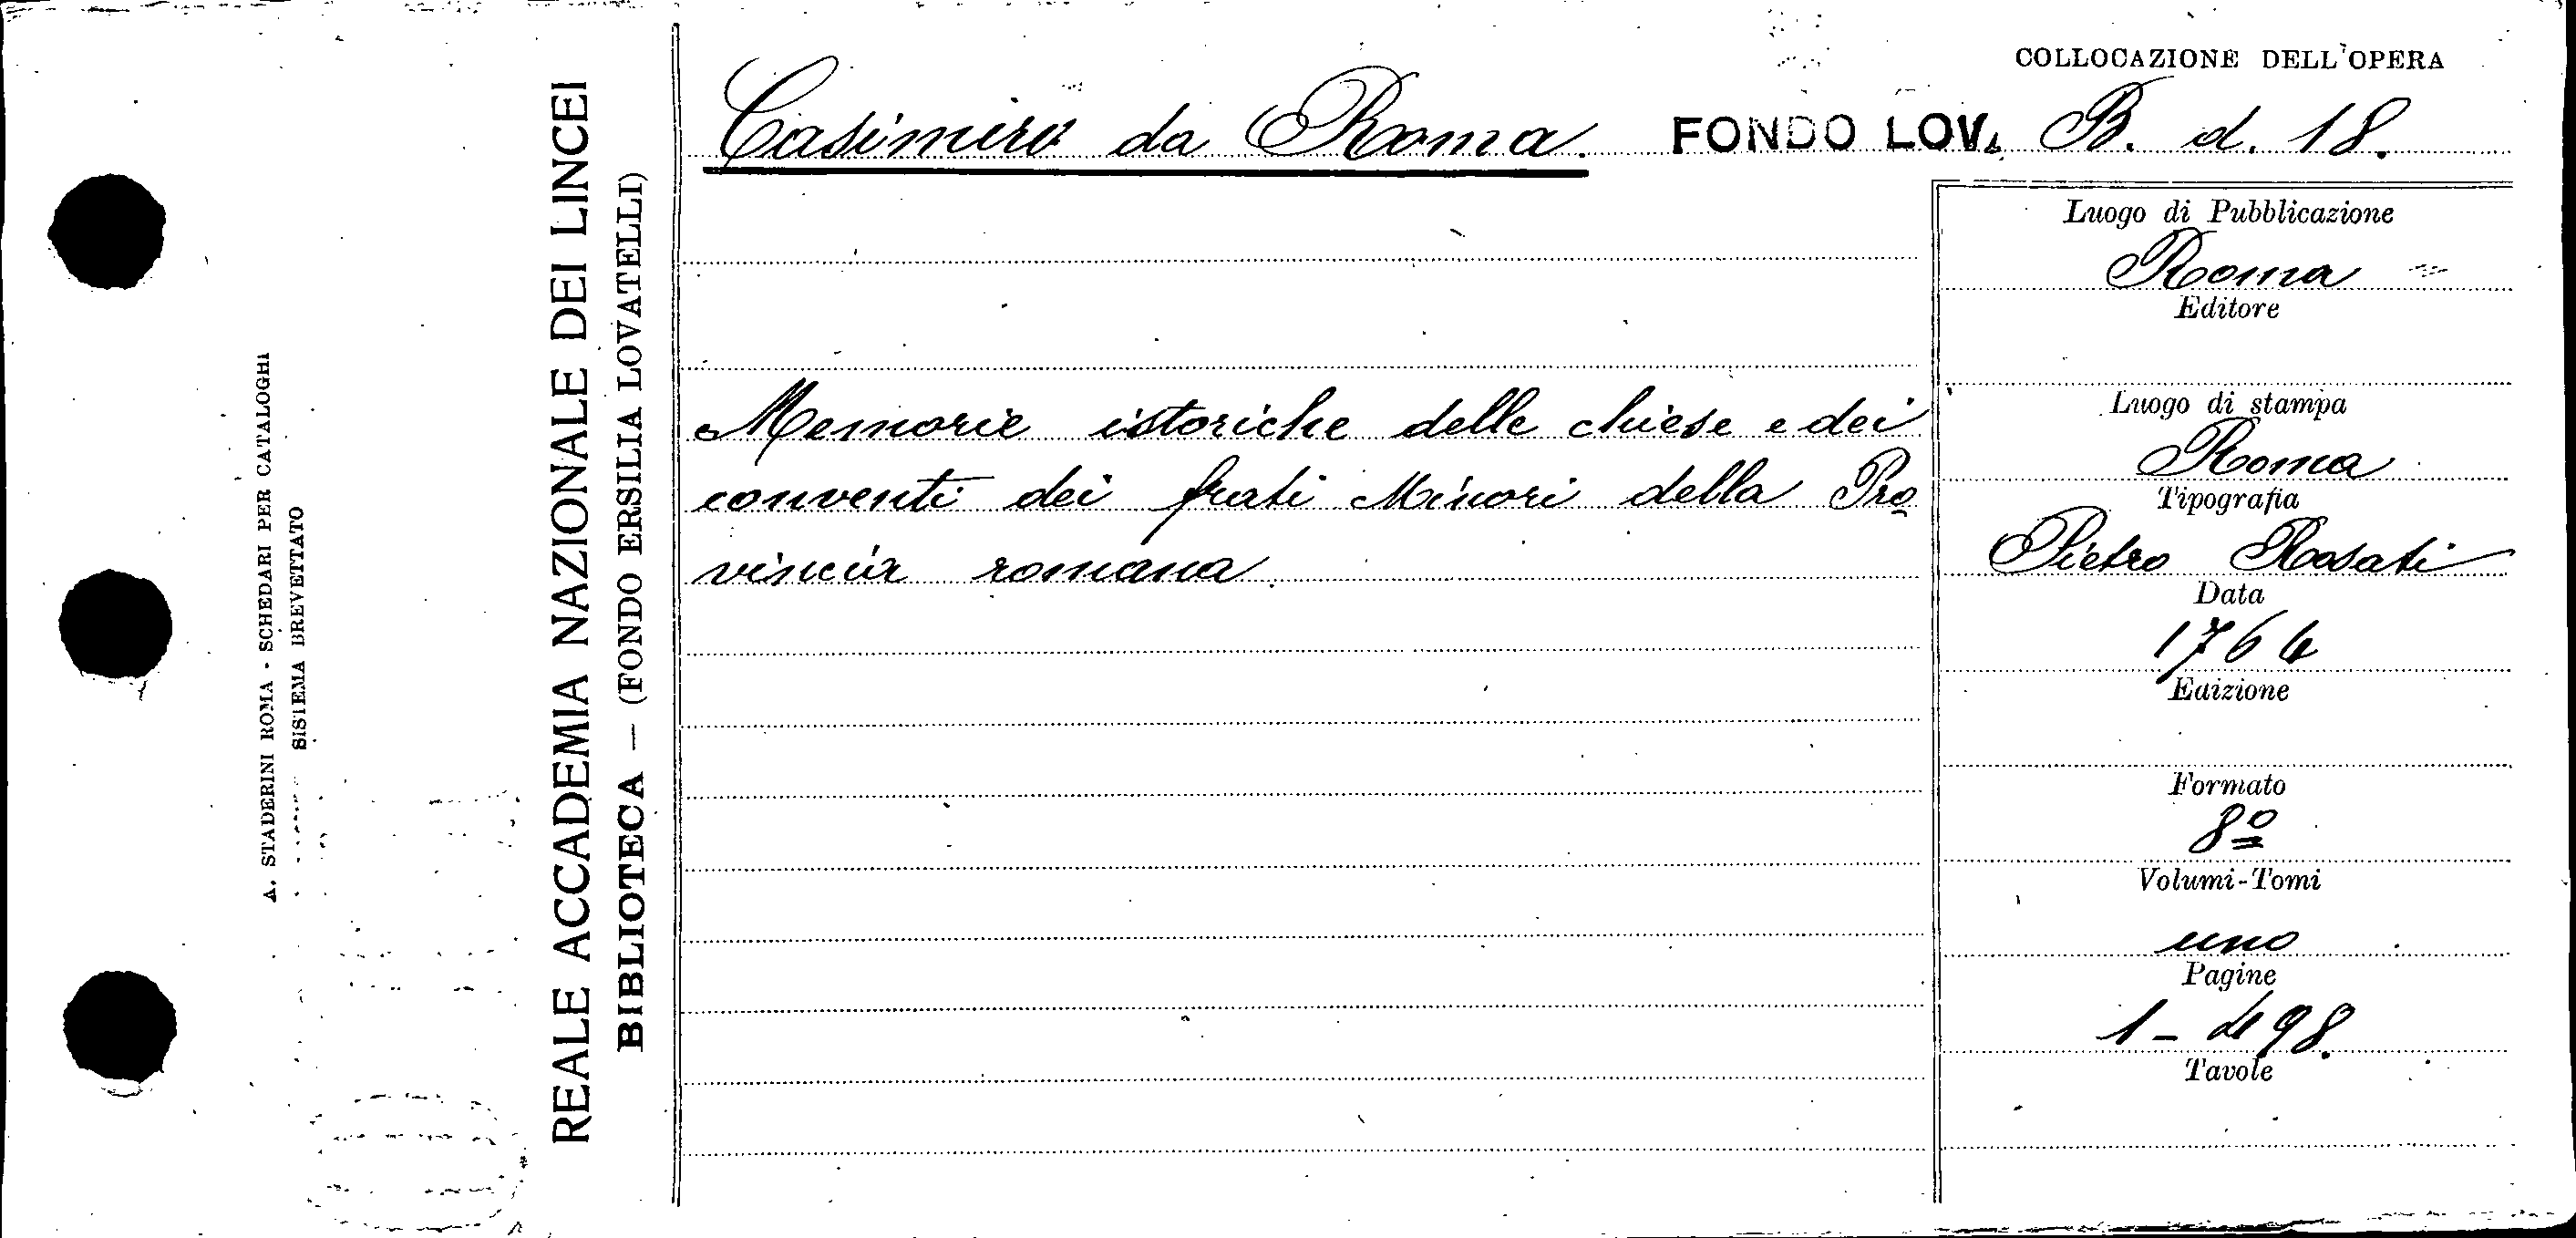 A. STADERINI ROMA - SCHEDARI PER CATALOGHI
SISTEMA BREVETTATO
REALE ACCADEMIA NAZIONALE DEI LINCEI
BIBLIOTECA — (FONDO ERSILIA LOVATELLI)
COLLOCAZIONE DELL'OPERA
Casimiro da Roma. FONDO LOV. B. d. 18.
Memorie istoriche delle chiese e dei
conventi dei frati Minori della Pro
vincia romana.
Luogo di Pubblicazione
Roma
Editore
Luogo di stampa
Roma
Tipografia
Pietro Rosati
Data
1764
Edizione
Formato
8º
Volumi-Tomi
uno
Pagine
1 - 498.
Tavole